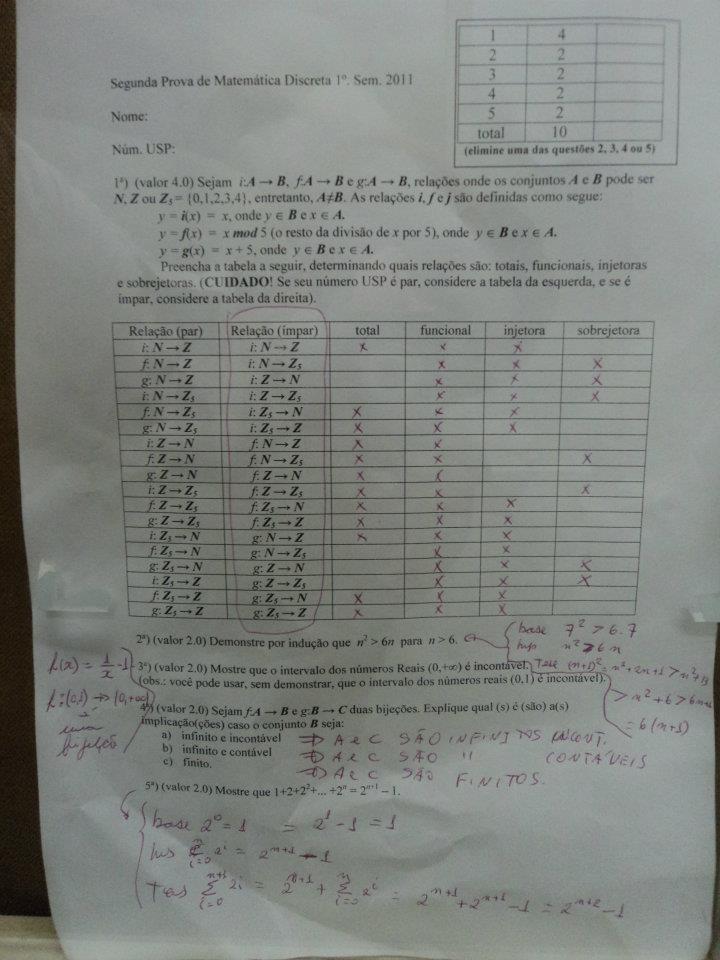 1 4
2 2
3 2
4 2
5 2
total 10
(elimine uma das questões 2, 3, 4 ou 5)
Segunda Prova de Matemática Discreta 1º. Sem. 2011
Nome:
Núm. USP:
1ª) (valor 4.0) Sejam i:A → B, f:A → B e g:A → B, relações onde os conjuntos A e B pode ser
N, Z ou Z₅ = {0,1,2,3,4}, entretanto, A≠B. As relações i, f e j são definidas como segue:
y = i(x) = x, onde y ∈ B e x ∈ A.
y = f(x) = x mod 5 (o resto da divisão de x por 5), onde y ∈ B e x ∈ A.
y = g(x) = x + 5, onde y ∈ B e x ∈ A.
Preencha a tabela a seguir, determinando quais relações são: totais, funcionais, injetoras
e sobrejetoras. (CUIDADO! Se seu número USP é par, considere a tabela da esquerda, e se é
ímpar, considere a tabela da direita).
Relação (par) Relação (ímpar) total funcional injetora sobrejetora
i: N → Z i: N → Z x x x
f: N → Z i: N → Z₅ x x x
g: N → Z i: Z → N x x x
i: N → Z₅ i: Z → Z₅ x x x
f: N → Z₅ i: Z₅ → N x x x
g: N → Z₅ i: Z₅ → Z x x x
i: Z → N f: N → Z x x
f: Z → N f: N → Z₅ x x x
g: Z → N f: Z → N x x
i: Z → Z₅ f: Z → Z₅ x x x
f: Z → Z₅ f: Z₅ → N x x x
g: Z → Z₅ f: Z₅ → Z x x x
i: Z₅ → N g: N → Z x x x
f: Z₅ → N g: N → Z₅ x x
g: Z₅ → N g: Z → N x x x
i: Z₅ → Z g: Z → Z₅ x x x
f: Z₅ → Z g: Z₅ → N x x x
g: Z₅ → Z g: Z₅ → Z x x x
2ª) (valor 2.0) Demonstre por indução que n² > 6n para n > 6.
base 7² > 6.7
hip n² > 6n
Tese (n+1)² = n² + 2n + 1 >
> n² + 6 >
= 6(n+1)
h(x) = 1/x - 1
h: (0,1) → (0,+∞)
é uma
bijeção
3ª) (valor 2.0) Mostre que o intervalo dos números Reais (0,+∞) é incontável.
(obs.: você pode usar, sem demonstrar, que o intervalo dos números reais (0,1) é incontável).
4ª) (valor 2.0) Sejam f:A → B e g:B → C duas bijeções. Explique qual (s) é (são) a(s)
implicação(ções) caso o conjunto B seja:
a) infinito e incontável ⇒ A e C SÃO INFINITOS INCONT.
b) infinito e contável ⇒ A e C SÃO " CONTÁVEIS
c) finito. ⇒ A e C SÃO FINITOS.
5ª) (valor 2.0) Mostre que 1+2+2²+... +2ⁿ = 2ⁿ⁺¹ – 1.
base 2⁰ = 1 = 2¹ - 1 = 1
hip Σ i=0 n 2ⁱ = 2ⁿ⁺¹ - 1
Tes Σ i=0 n+1 2ⁱ = 2ⁿ⁺¹ + Σ i=0 n 2ⁱ = 2ⁿ⁺¹ + 2ⁿ⁺¹ - 1 = 2ⁿ⁺² - 1